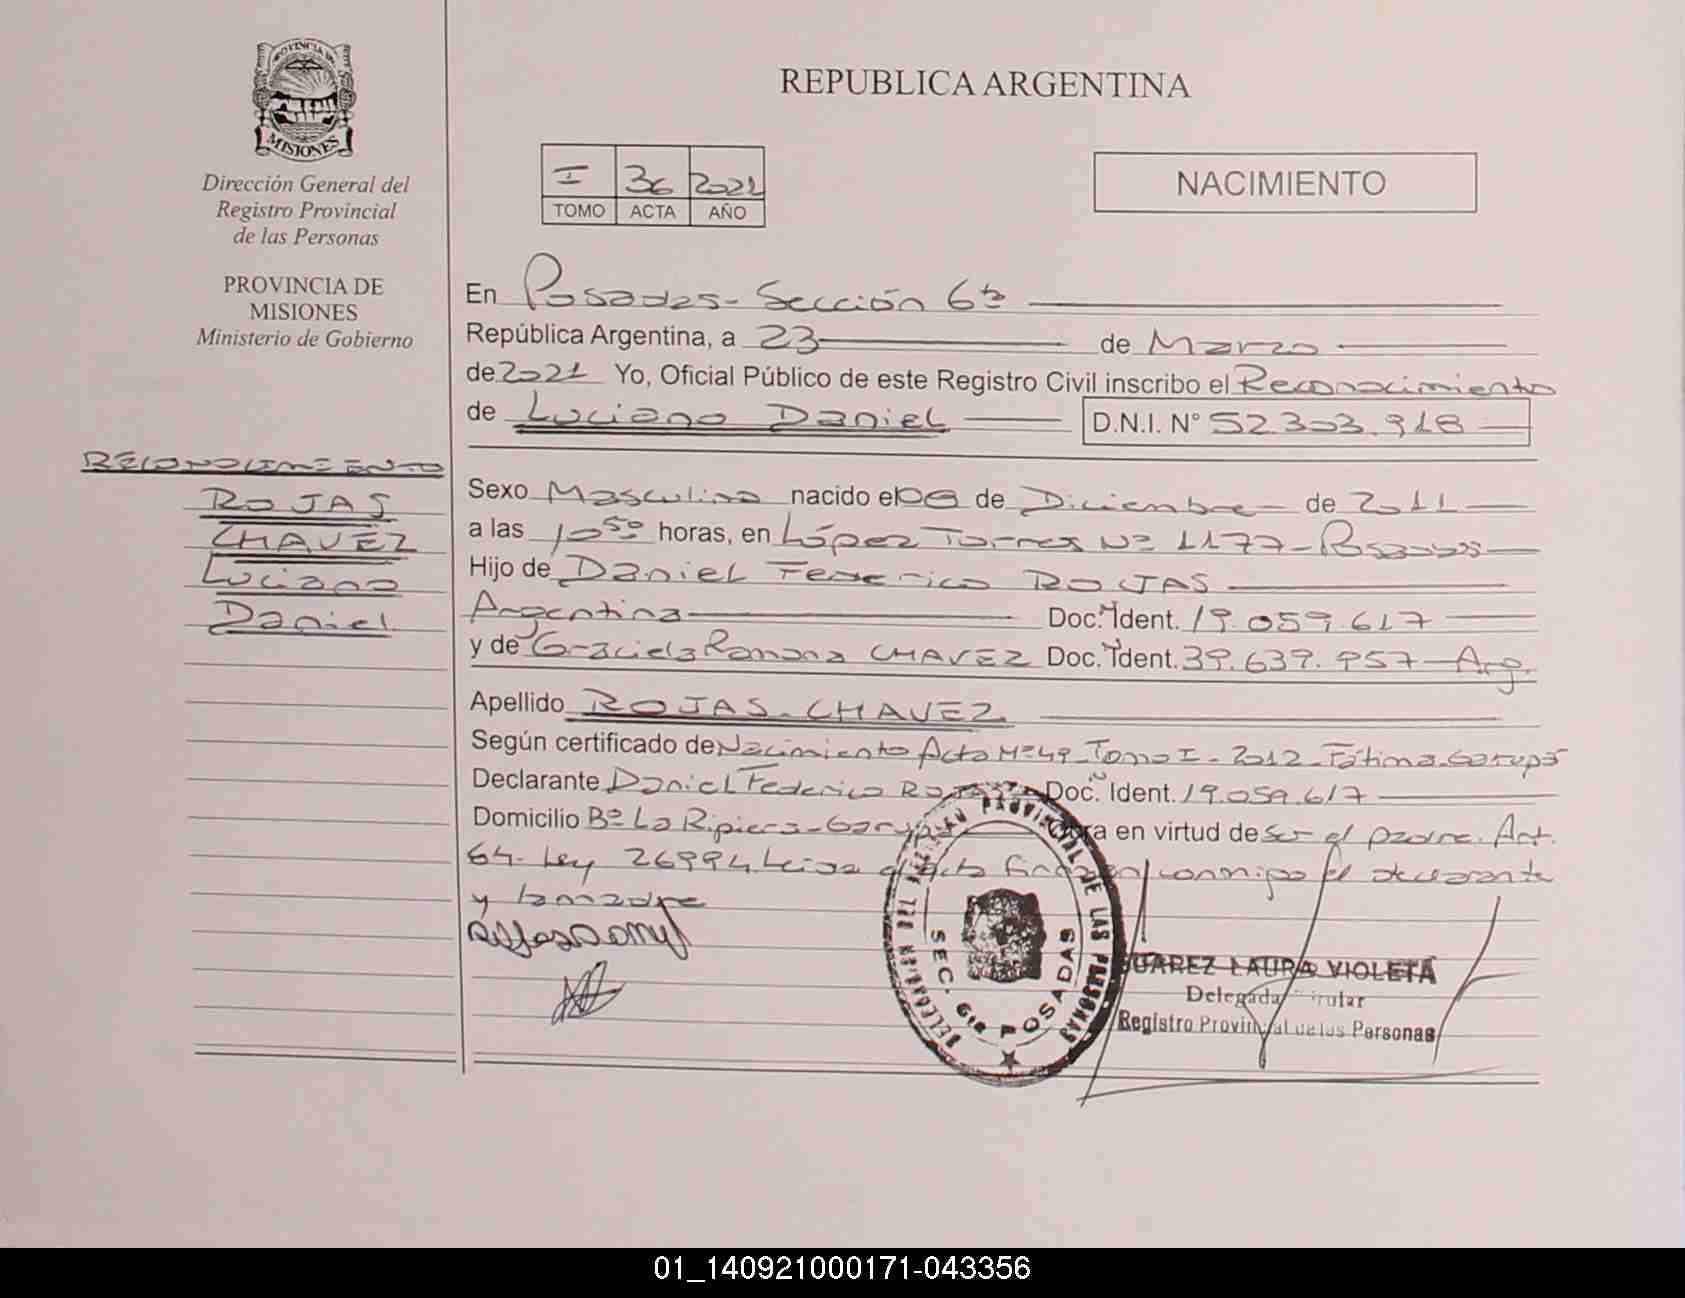 PROVINCIA DE
MISIONES
Dirección General del
Registro Provincial
de las Personas
PROVINCIA DE
MISIONES
Ministerio de Gobierno
RECONOCIMIENTO
ROJAS
CHAVEZ
Luciano
Daniel
REPUBLICA ARGENTINA
I 36 2021
TOMO ACTA AÑO
NACIMIENTO
En Posadas - Sección 6ta
República Argentina, a 23 de Marzo
de 2021 Yo, Oficial Público de este Registro Civil inscribo el Reconocimiento
de Luciano Daniel D.N.I. N° 52.303.918
Sexo Masculino nacido el 08 de Diciembre de 2011
a las 10:50 horas, en López Torres Nº 1177 - Posadas
Hijo de Daniel Federico ROJAS
Argentina Doc. Ident. 19.059.617
y de Graciela Romona CHAVEZ Doc. Ident. 39.639.957 - Arg.
Apellido ROJAS - CHAVEZ
Según certificado de Nacimiento Acta Nº 49 - Tomo I - 2012 - Fátima - Garupá
Declarante Daniel Federico ROJAS Doc. Ident. 19.059.617
Domicilio Bº La Ripiera - Garupá Obra en virtud de ser el padre. Art.
64 - Ley 26994. Leida el Acta firman conmigo el declarante
y la madre
DELEGACION DEL REGISTRO PROVINCIAL DE LAS PERSONAS
SEC. 6ta POSADAS
SUAREZ LAURA VIOLETA
Delegada Titular
Registro Provincial de las Personas
01_140921000171-043356